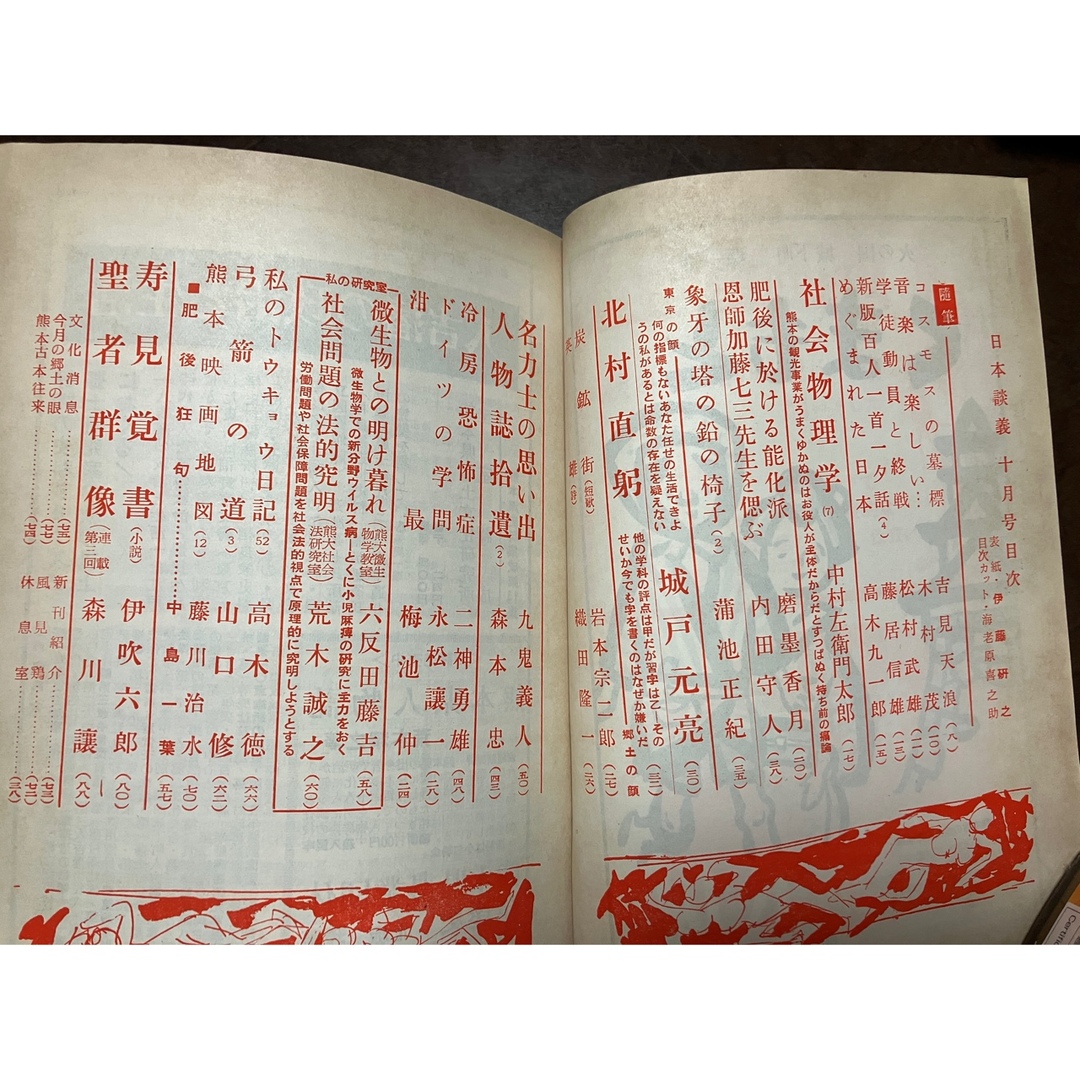 日本談義 十月号目次
表紙・伊藤研之
目次カット・海老原喜之助
随筆
コスモスの墓標 吉見天浪(八)
音楽は楽しい… 木村茂(一〇)
学徒動員と終戦 松村武雄(一三)
新版百人一首一夕話(4) 藤居信雄
めぐまれた日本 高木九一郎(一五)
社会物理学(7) 中村左衛門太郎(一七)
熊本の観光事業がうまくゆかぬのはお役人が主体だからだとすっぱぬく持ち前の痛論
肥後に於ける能化派 磨墨香月(二〇)
恩師加藤七三先生を偲ぶ 内田守人(三八)
象牙の塔の鉛の椅子(2) 蒲池正紀(三五)
東京の顔 何の指標もないあなた任せの生活できようの私があるとは命数の存在を疑えない
城戸元亮(三〇)
北村直躬
他の学科の評点は甲だが習字は乙―そのせいか今でも字を書くのはなぜか嫌いだ 郷土の顔(三二)
炭鉱街(短歌) 岩本宗二郎(二七)
英雄(詩) 織田隆一(二六)
名力士の思い出 九鬼義人(五〇)
人物誌拾遺(2) 森本忠(四三)
冷房恐怖症 二神勇雄(四八)
ドイツの学問 永松譲一(二八)
泔最 梅池人仲(二四)
私の研究室
微生物との明け暮れ(熊大微生物学教室) 六反田藤吉(五八)
微生物学での新分野ウイルス病―とくに小児麻痺の研究に主力をおく
社会問題の法的究明(熊大社会法研究室) 荒木誠之(六〇)
労働問題や社会保障問題を社会法的視点で原理的に究明しようとする
私のトウキョウ日記(52) 高木徳(六六)
弓箭の道(3) 山口修(六二)
熊本映画地図(12) 藤川治水(七〇)
■肥後狂句………中島一葉(五七)
寿見覚書(小説) 伊吹六郎(八〇)
聖者群像(連載第三回) 森川譲(八八)
文化消息………(七五) 新刊紹介………(七三)
今月の郷土の眼………(七) 風見鶏………(七二)
熊本古本往来………(七四) 休息室………(三八)